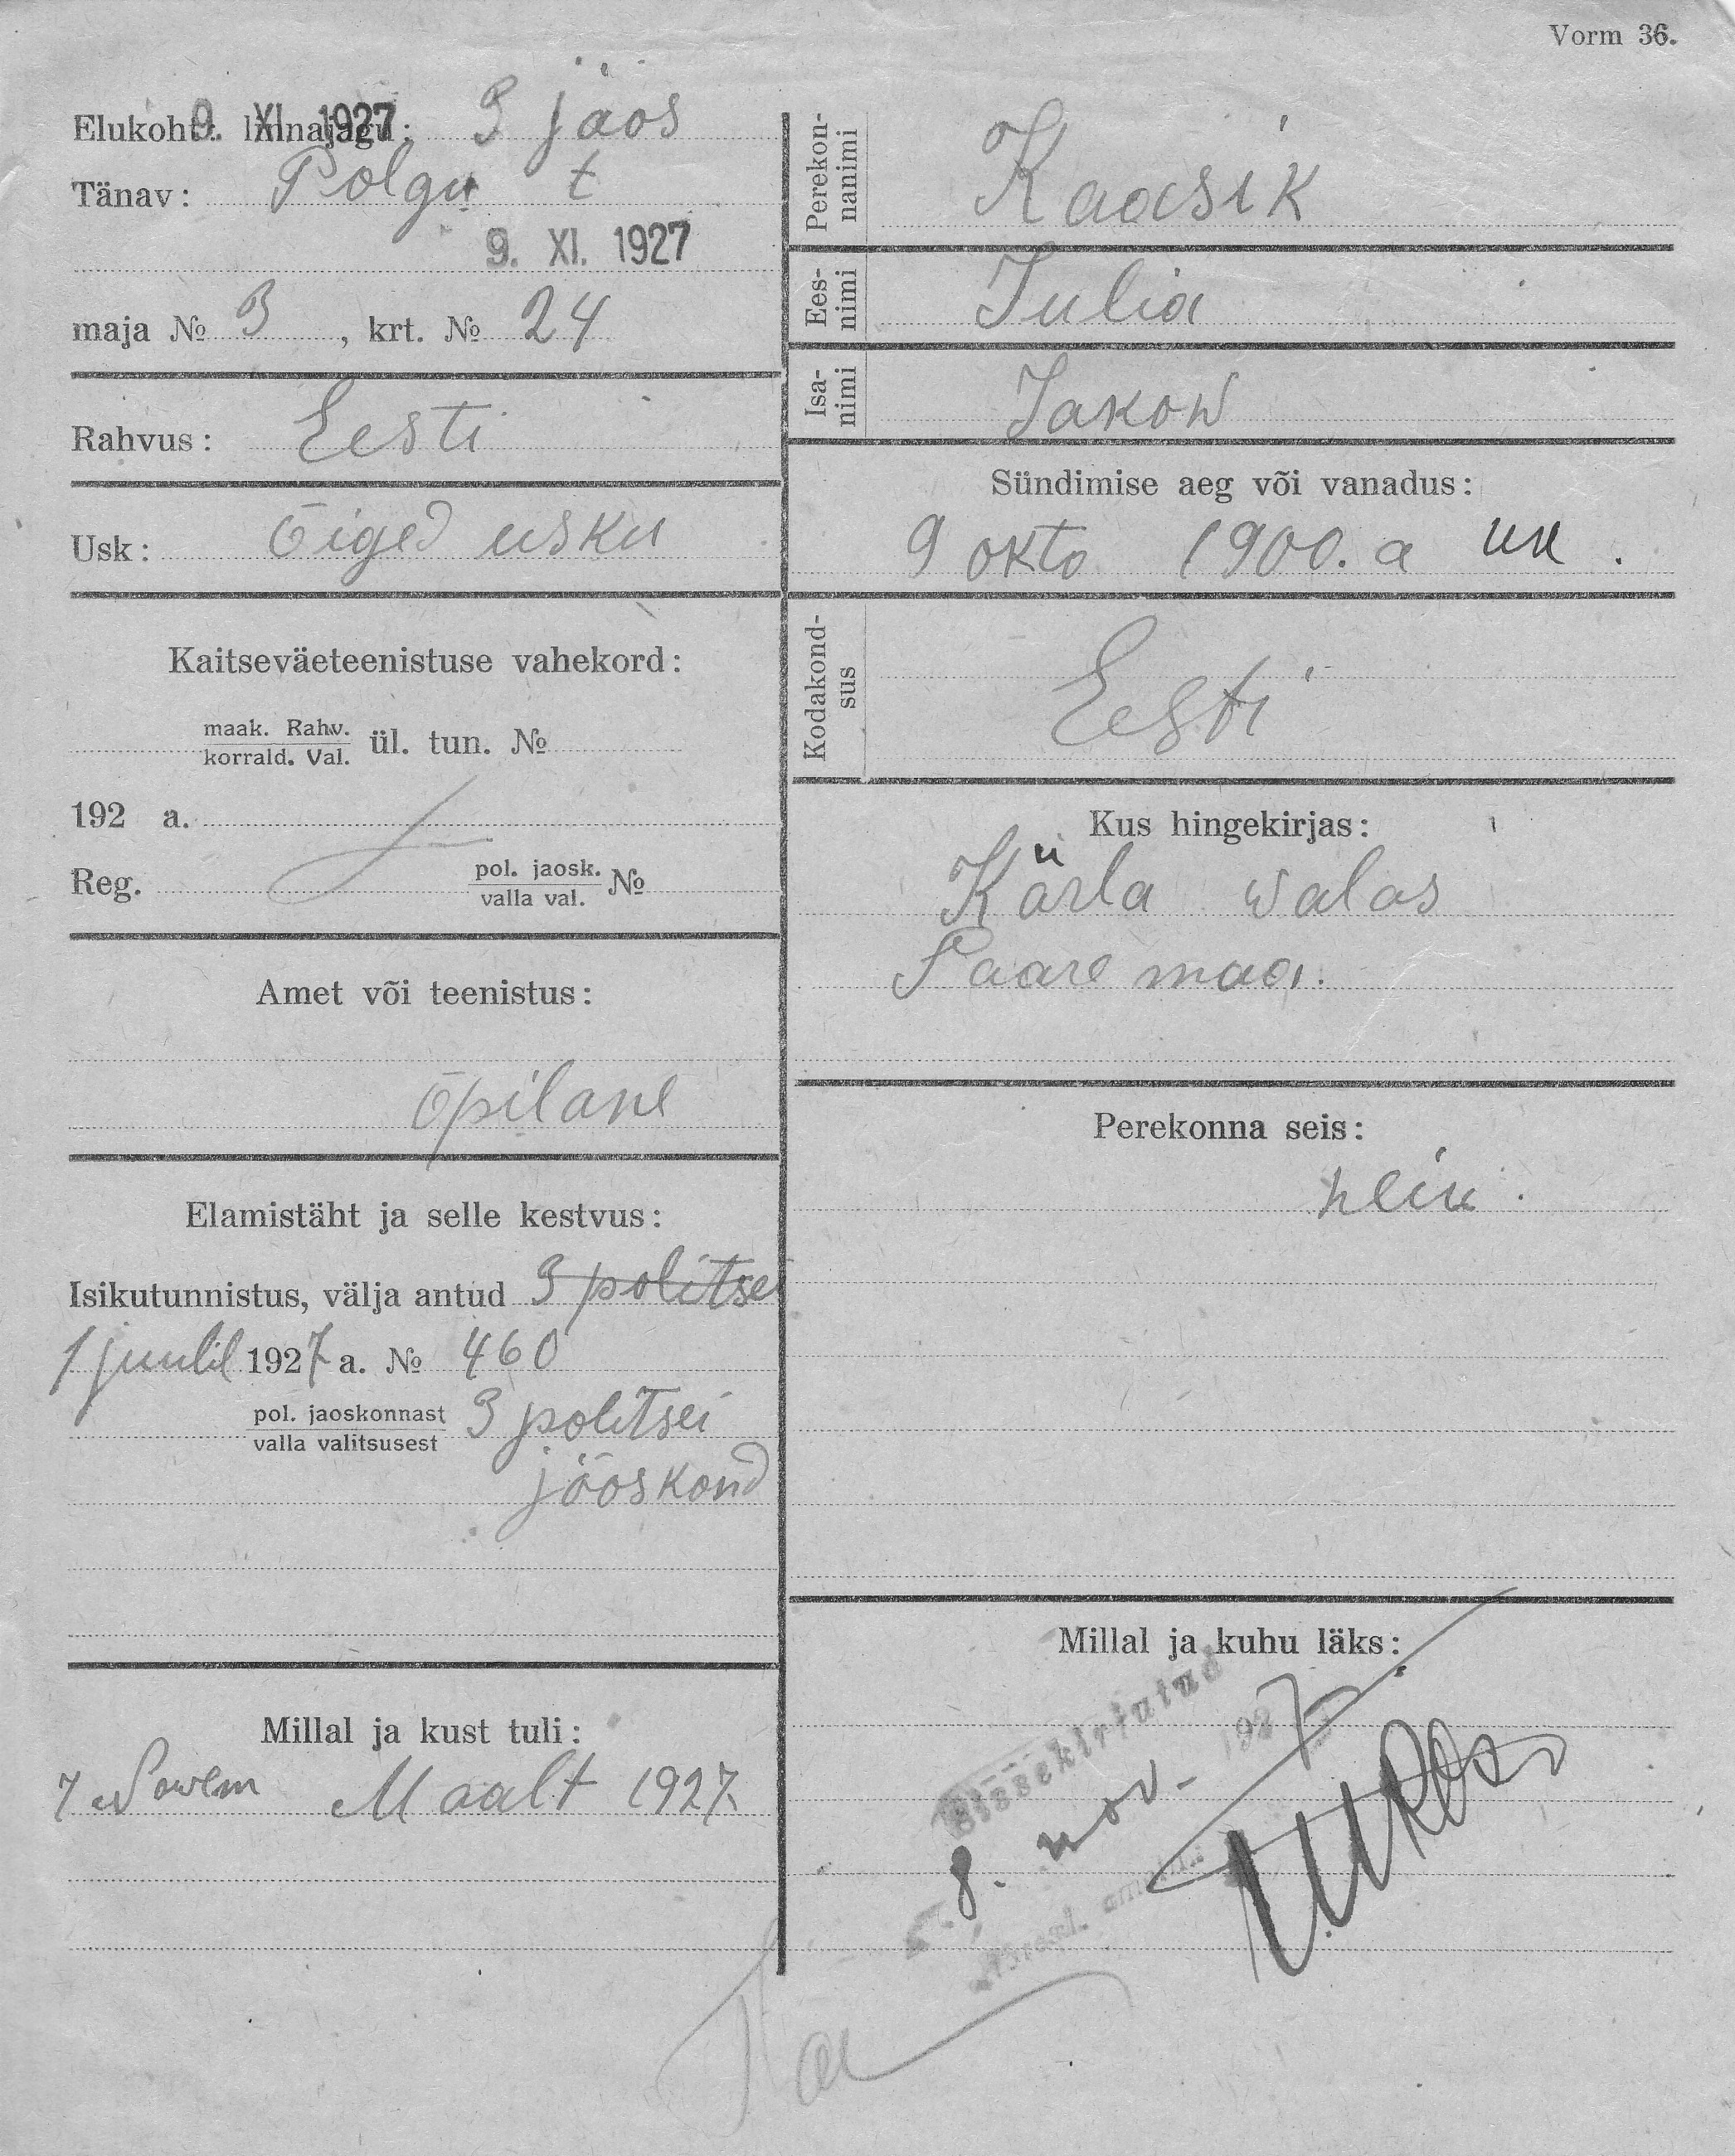 Vorm 36.
Elukoht: linnajagu: 3 jäos
9. XI. 1927
Tänav: Polgu t
9. XI. 1927
maja № 3, krt. № 24
Rahvus: Eesti
Usk: Õiged usku
Kaitseväeteenistuse vahekord:
maak. Rahv.
korrald. Val. ül. tun. №
192 a.
Reg. pol. jaosk.
valla val. №
Amet või teenistus:
õpilane
Elamistäht ja selle kestvus:
Isikutunnistus, välja antud 3 politsei
1 juulil 1927 a. № 460
pol. jaoskonnast
valla valitsusest 3 politsei
jöoskond
Millal ja kust tuli:
7 Novem Maalt 1927
Perekon-
nanimi Kaasik
Ees-
nimi Julia
Isa-
nimi Jakow
Sündimise aeg või vanadus:
9 okto 1900. a
Kodakond-
sus Eesti
Kus hingekirjas:
Kärla walas
Saare maa.
Perekonna seis:
neiu.
Millal ja kuhu läks:
Sissekirjutud
8. nov. 1927